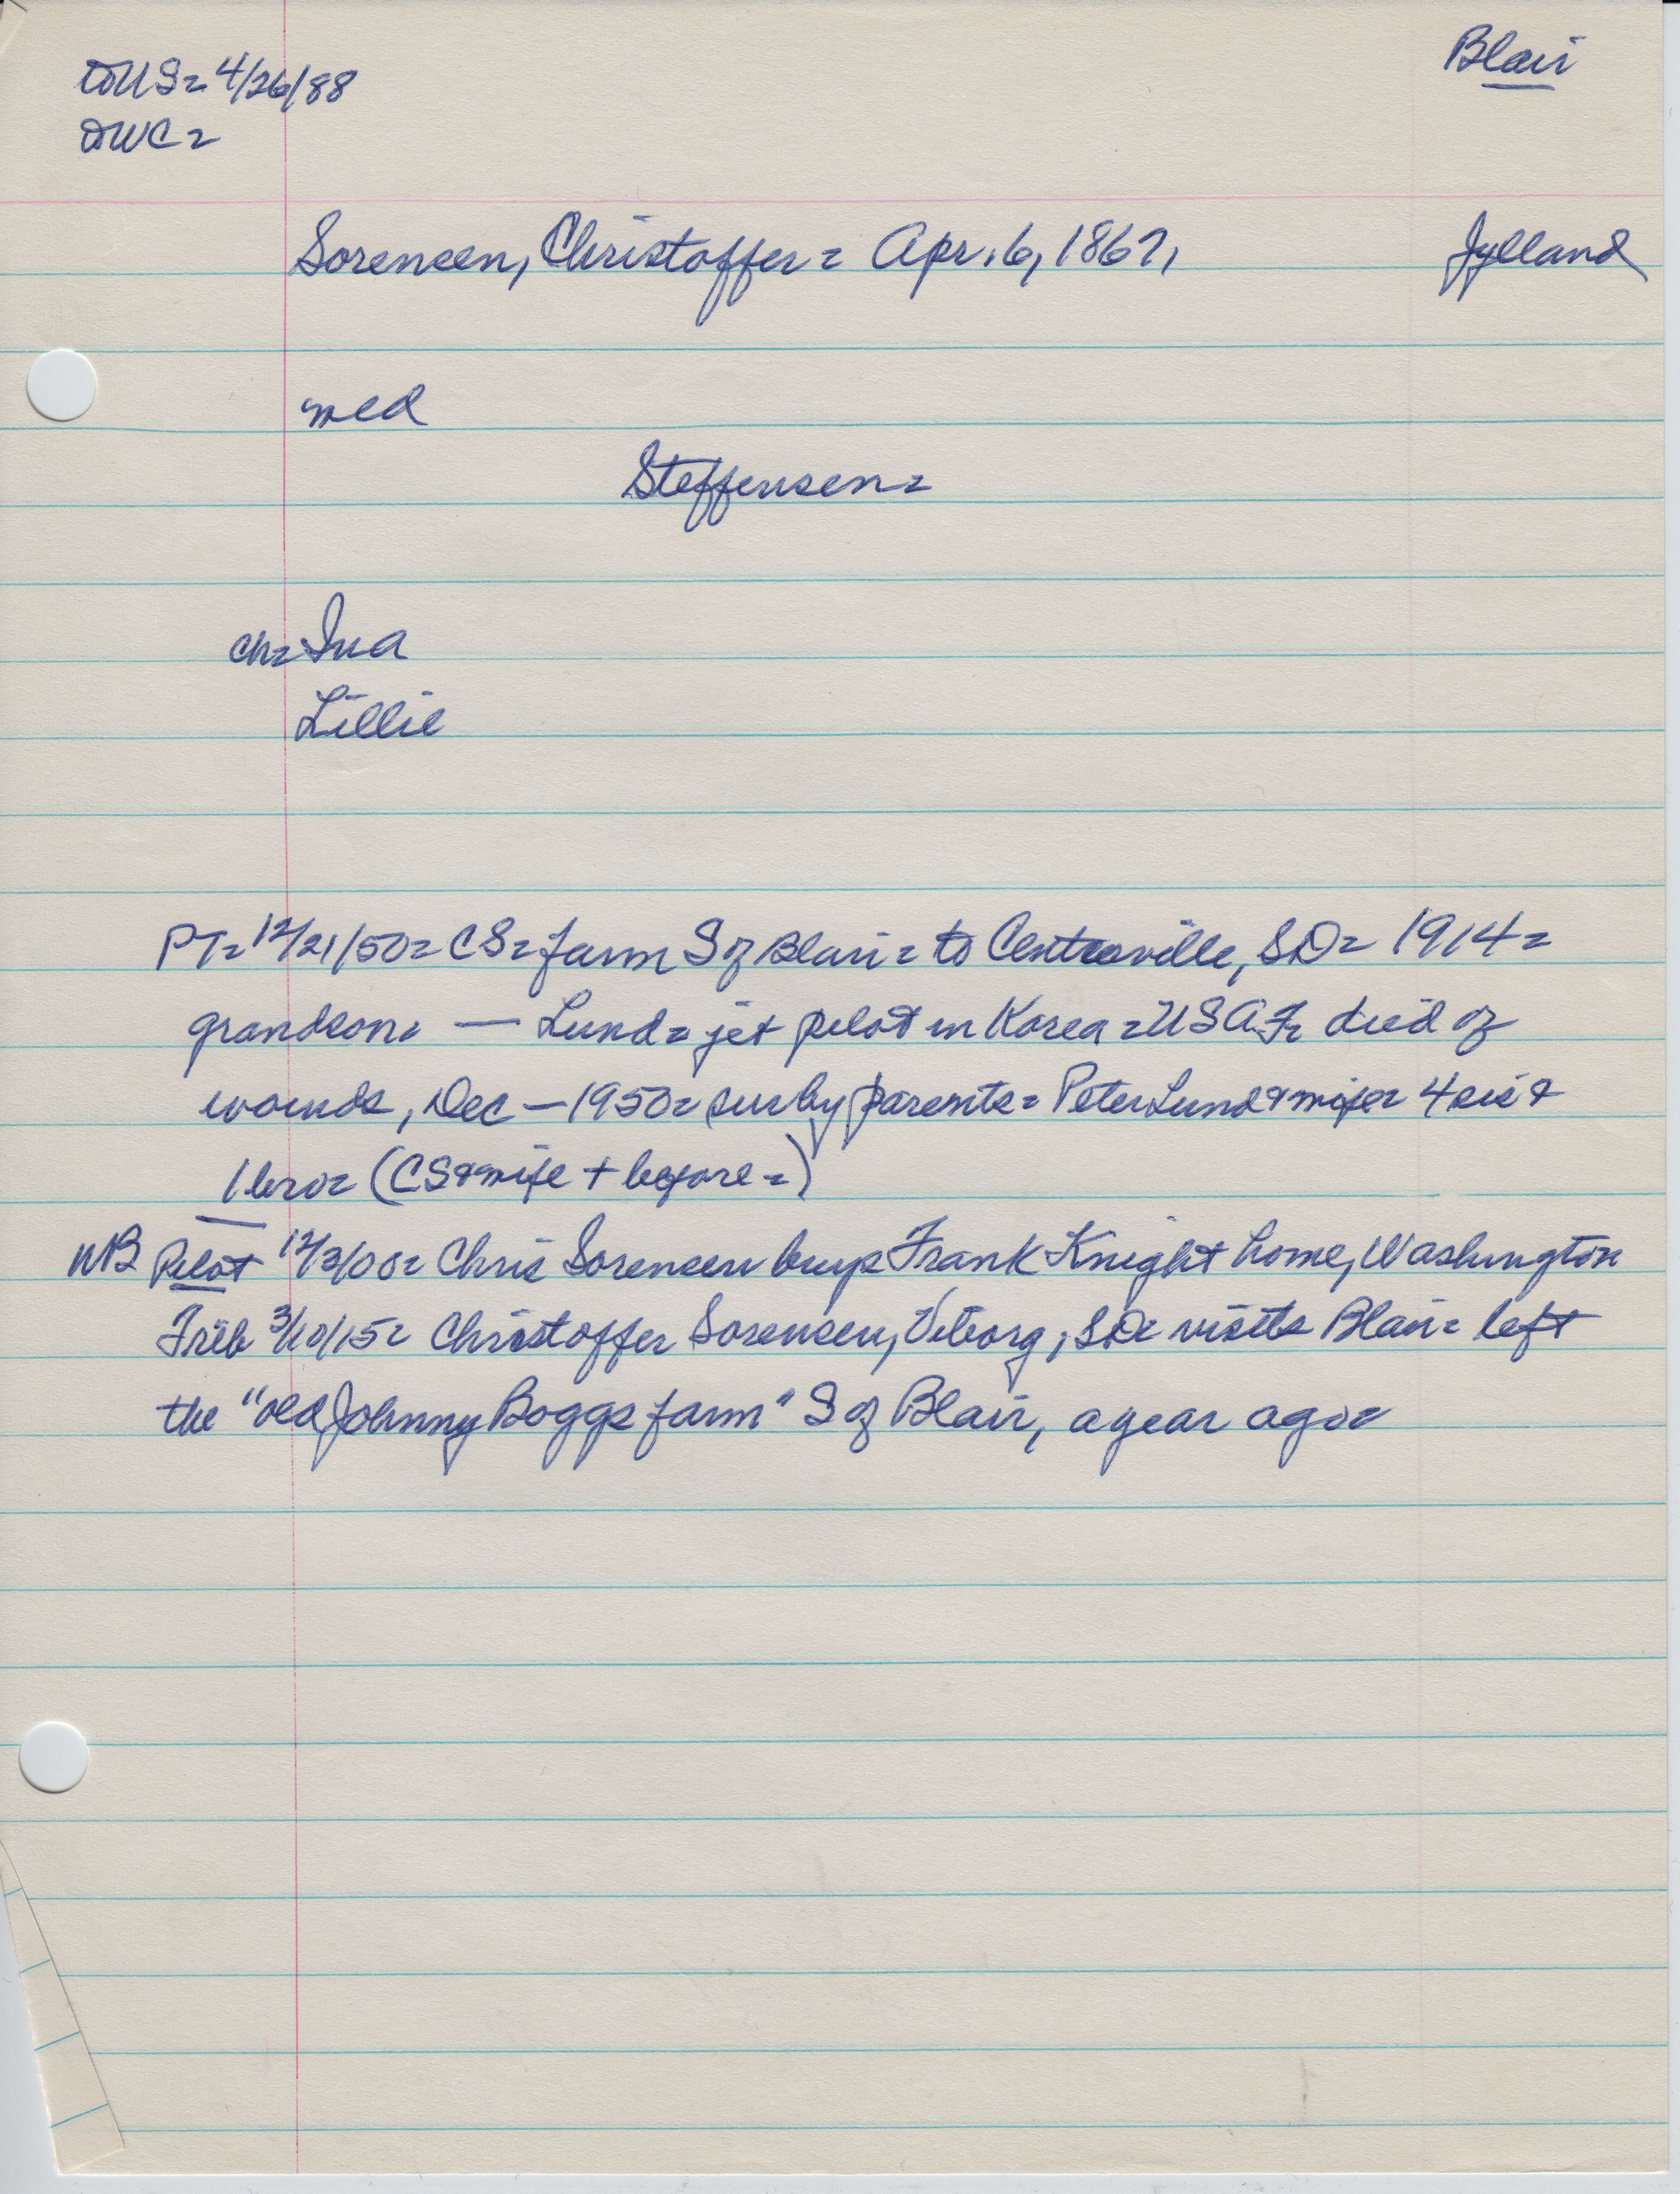 DUS= 4/26/88
Blair
DWC=
Sorensen, Christoffer = Apr. 6, 1867,
Jylland
med
Steffensen=
ch= Ina
Lillie
PT= 12/21/50= CS= farm S of Blair= to Centerville, SD= 1914=
grandson= — Lund= jet pilot in Korea=USAF= died of
wounds, Dec — 1950= sur by parents= Peter Lund & wife= 4 sis &
1 bro= (CS & wife + before =)
NB Pilot 12/3/08= Chris Sorensen buys Frank Knight home, Washington
Trib 3/10/15= Christoffer Sorensen, Viborg, SD= visits Blair= left
the "old Johnny Boggs farm" S of Blair, a year ago=